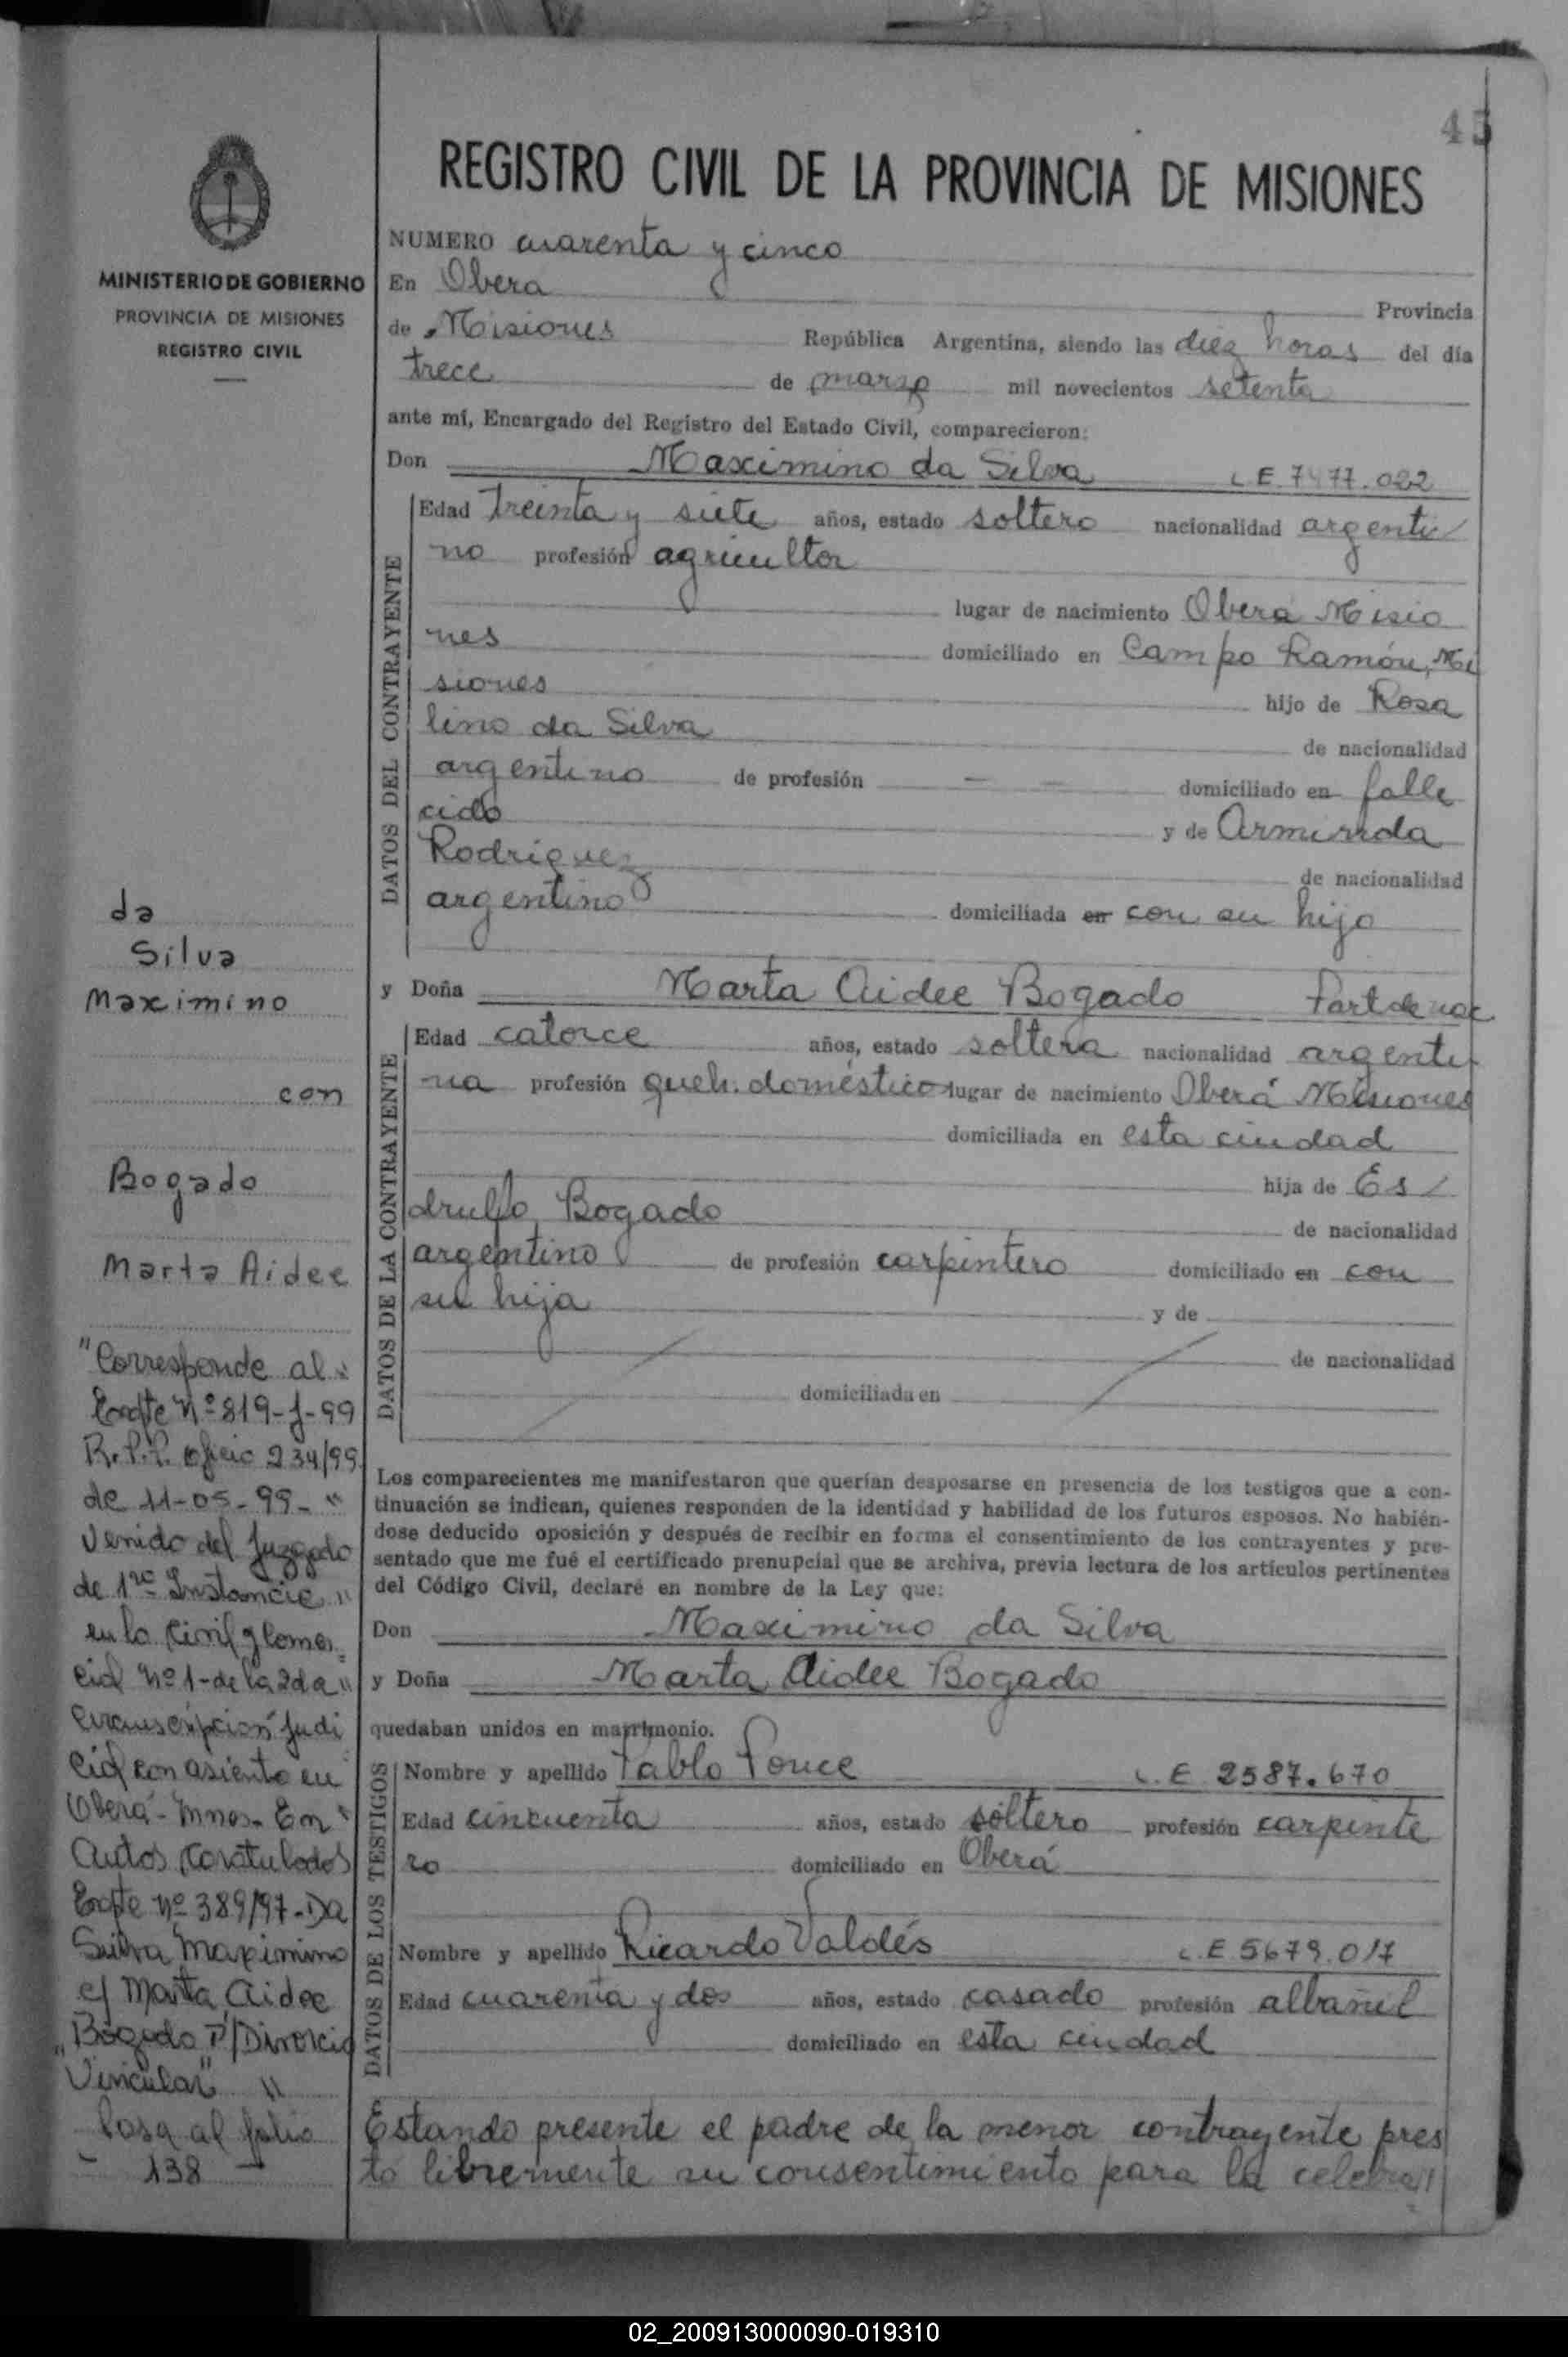 45
REGISTRO CIVIL DE LA PROVINCIA DE MISIONES
MINISTERIO DE GOBIERNO
PROVINCIA DE MISIONES
REGISTRO CIVIL
NUMERO cuarenta y cinco
En Obera Provincia
de Misiones República Argentina, siendo las diez horas del día
trece de marzo mil novecientos setenta
ante mí, Encargado del Registro del Estado Civil, comparecieron:
Don Maximino da Silva L E. 7477.022
DATOS DEL CONTRAYENTE
Edad treinta y siete años, estado soltero nacionalidad argenti
no profesión agricultor
lugar de nacimiento Oberá Misio
nes domiciliado en Campo Ramón, Mi
siones hijo de Rosa
lino da Silva de nacionalidad
argentino de profesión — — domiciliado en falle
cido y de Arminda
Rodriguez de nacionalidad
argentino domiciliada en con su hijo
y Doña Marta Aidee Bogado Part de nac
DATOS DE LA CONTRAYENTE
Edad catorce años, estado soltera nacionalidad argenti
na profesión queh. doméstico lugar de nacimiento Oberá Misiones
domiciliada en esta ciudad
hija de Es/
drulfo Bogado de nacionalidad
argentino de profesión carpintero domiciliado en con
su hija y de
de nacionalidad
domiciliada en
Los comparecientes me manifestaron que querían desposarse en presencia de los testigos que a con-
tinuación se indican, quienes responden de la identidad y habilidad de los futuros esposos. No habién-
dose deducido oposición y después de recibir en forma el consentimiento de los contrayentes y pre-
sentado que me fué el certificado prenupcial que se archiva, previa lectura de los artículos pertinentes
del Código Civil, declaré en nombre de la Ley que:
Don Maximino da Silva
y Doña Marta Aidee Bogado
quedaban unidos en matrimonio.
DATOS DE LOS TESTIGOS
Nombre y apellido Pablo Ponce L. E 2587.670
Edad cincuenta años, estado soltero profesión carpinte
ro domiciliado en Oberá
Nombre y apellido Ricardo Valdés L. E 5679.017
Edad cuarenta y dos años, estado casado profesión albañil
domiciliado en esta ciudad
Estando presente el padre de la menor contrayente pres
tó libremente su consentimiento para la celebra//
da
Silva
Maximino
con
Bogado
Marta Aidee
"Corresponde al "
Expte Nº 819-J-99
R.P.P. Oficio 234/99
de 11-05-99- "
Venido del Juzgado
de 1ra Instancia "
en lo Civil y Comer
cial Nº 1-de la 2da "
Circunscripción Judi
cial con asiento en
Oberá-Mnes. En "
Autos Caratulados
Expte Nº 389/97-Da
Silva Maximino
c/ Marta Aidee
"Bogado P/Divorcio
Vincular" "
Pasa al folio
- 138 -
02_200913000090-019310